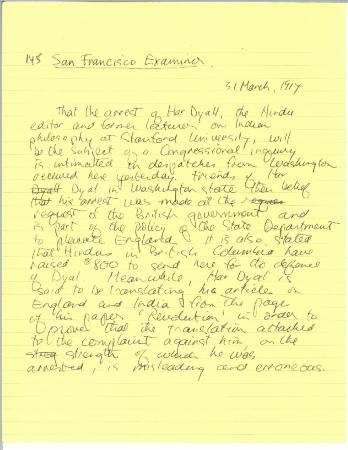 145 San Francisco Examiner.
31 March, 1914
That the arrest of Har Dyall, the Hindu
editor and former lecturer on Indian
philosophy at Stanford University, will
be the subject of a Congressional inquiry
is intimated in despatches from Washington
received here yesterday. Friends of Har
Dyall Dyal in Washington state their belief
that his arrest was made at the reques
request of the British government and
is part of the policy of the State Department
to placate England. It is also stated
that Hindus in British Columbia have
raised $800 to send here for the defence
of Dyal. Meanwhile, Har Dyal is
said to be translating his articles on
England and India from the page
of his paper 'Revolution' in order to
prove that the translation attached
to the complaint against him, on the
strength of which he was
arrested, is misleading and erroneous.